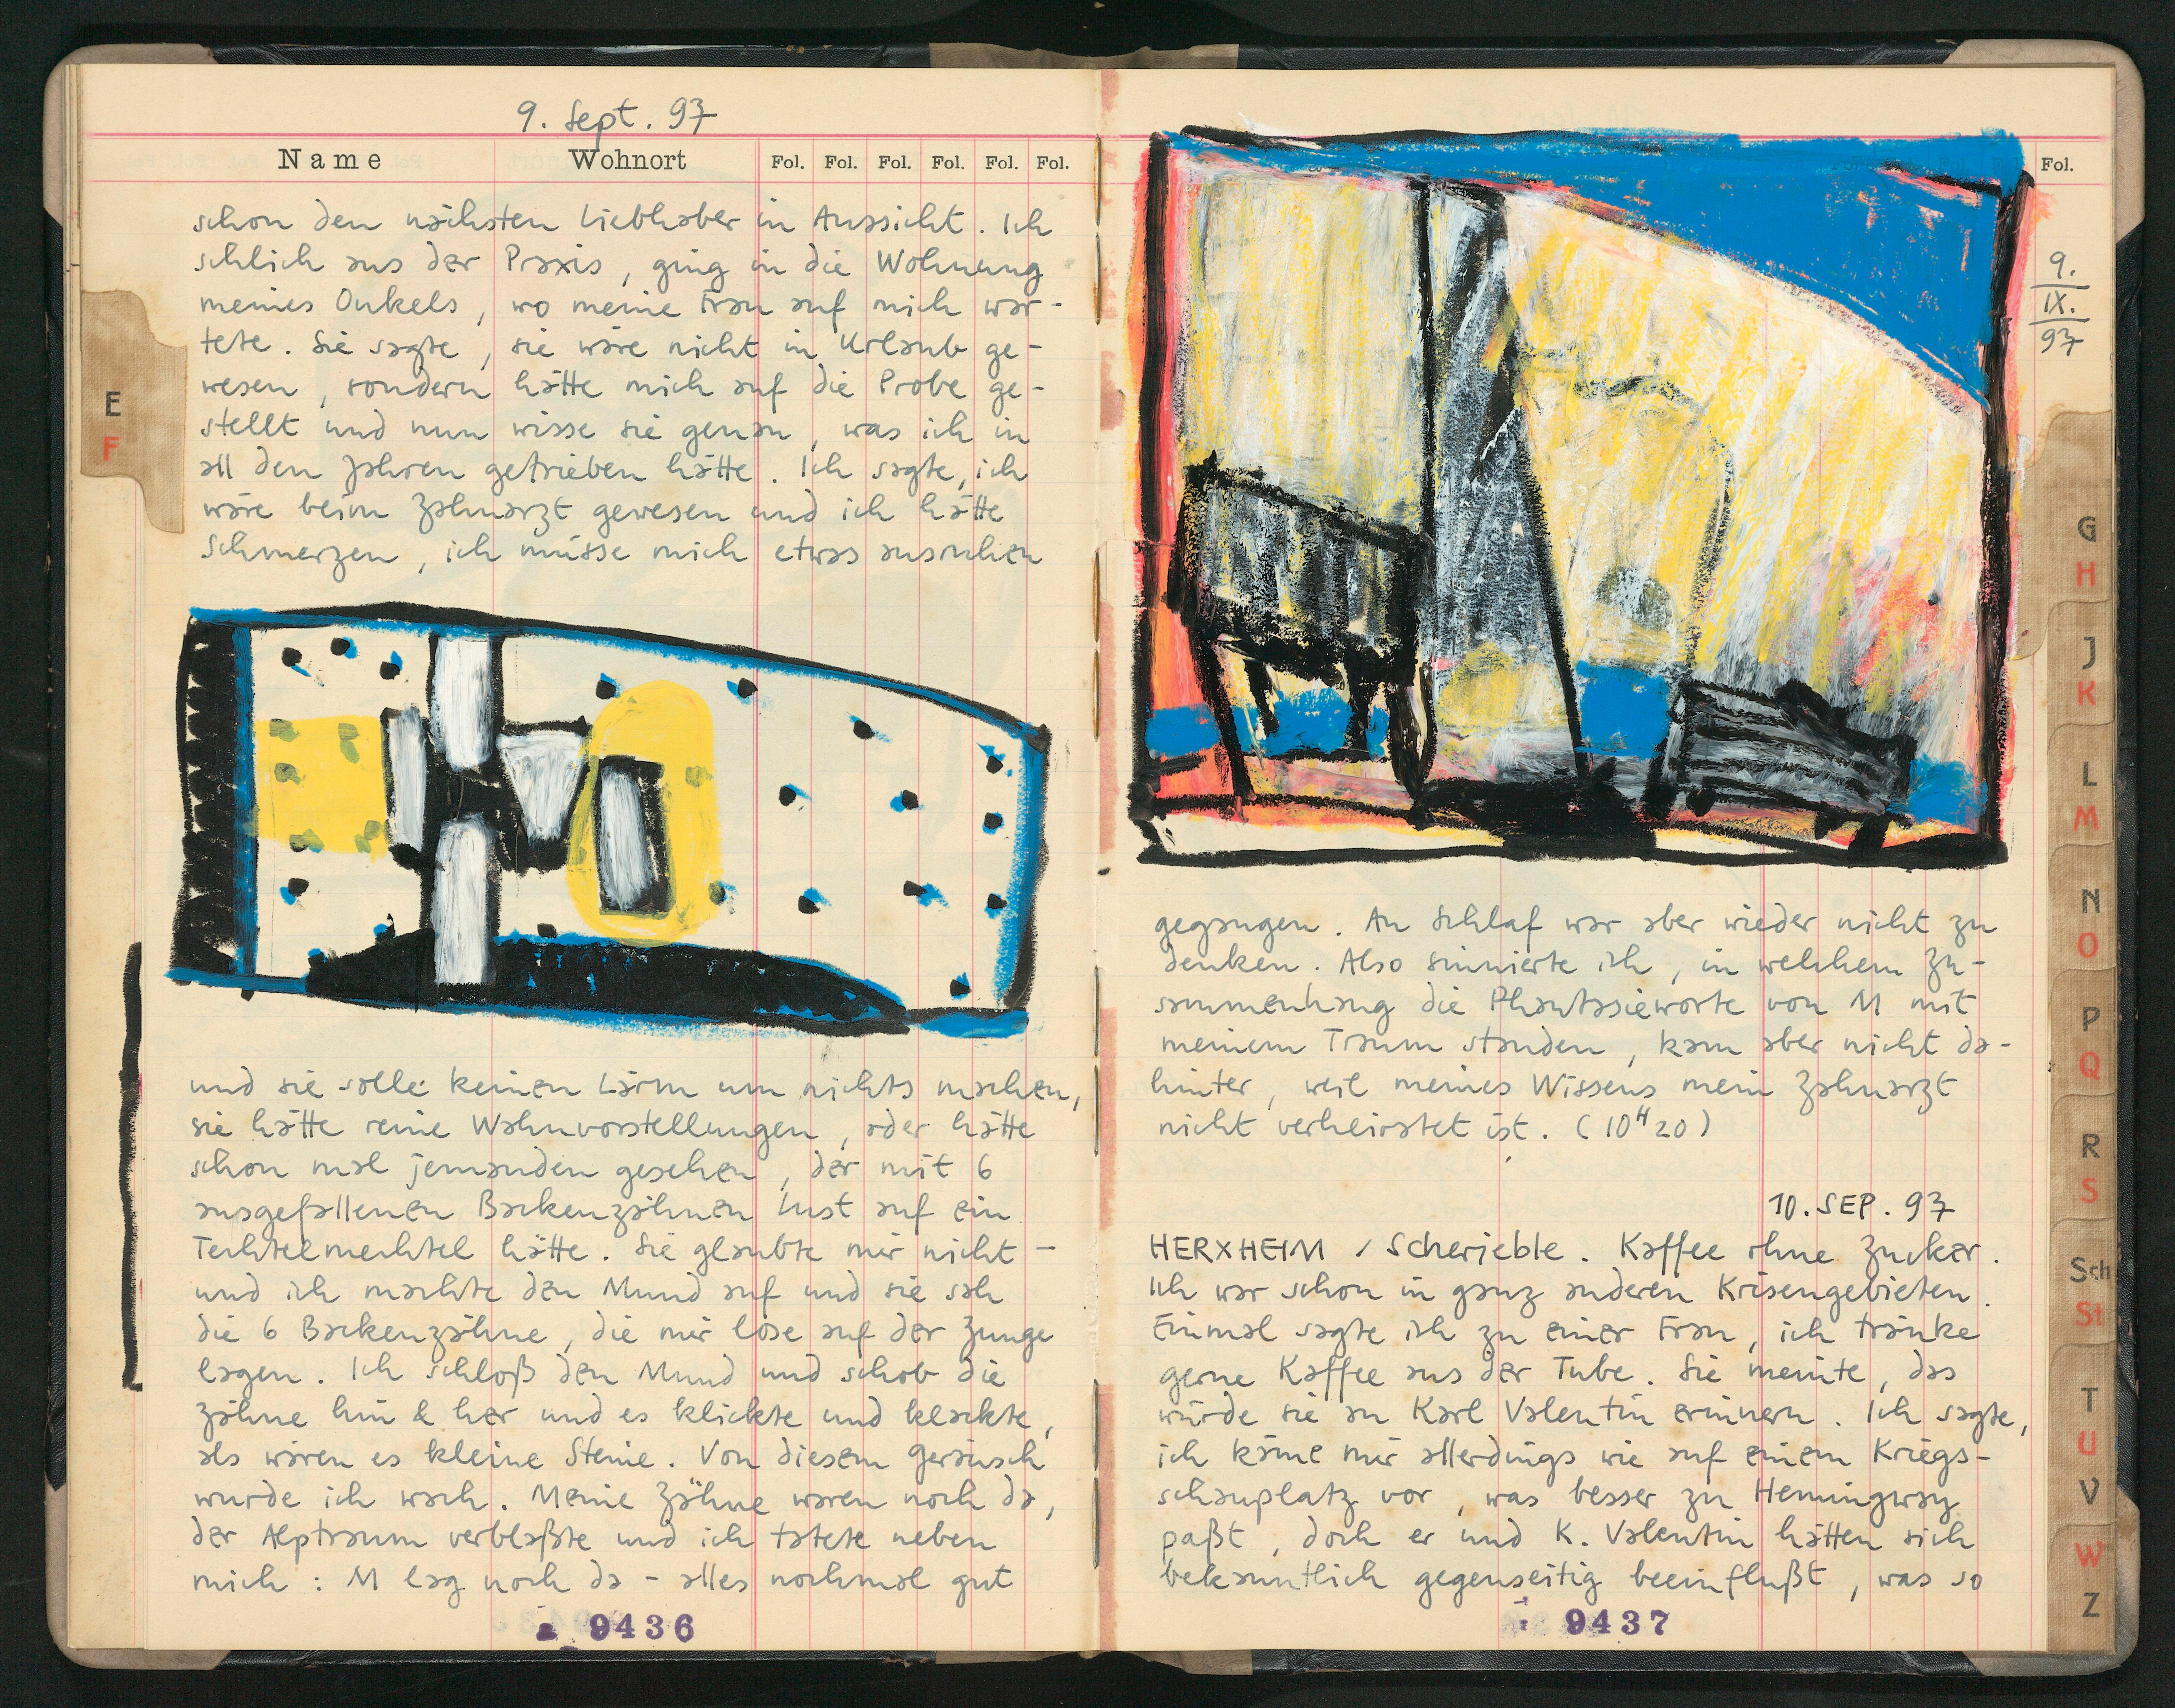 9. Sept. 97
Name Wohnort Fol. Fol. Fol. Fol. Fol. Fol.
schon den nächsten Liebhaber in Aussicht. Ich
schlich aus der Praxis, ging in die Wohnung
meines Onkels, wo meine Frau auf mich war-
tete. Sie sagte, sie wäre nicht in Urlaub ge-
wesen, sondern hätte mich auf die Probe ge-
stellt und nun wisse sie genau, was ich in
all den Jahren getrieben hätte. Ich sagte, ich
wäre beim Zahnarzt gewesen und ich hätte
Schmerzen, ich müsse mich etwas ausruhen
und sie solle keinen Lärm um nichts machen,
sie hätte reine Wahnvorstellungen, oder hätte
schon mal jemanden gesehen, der mit 6
ausgefallenen Backenzähnen Lust auf ein
Techtelmechtel hätte. Sie glaubte mir nicht -
und ich machte den Mund auf und sie sah
die 6 Backenzähne, die mir lose auf der Zunge
lagen. Ich schloß den Mund und schob die
Zähne hin & her und es klickte und klackte,
als wären es kleine Steine. Von diesem Geräusch
wurde ich wach. Meine Zähne waren noch da,
der Alptraum verblaßte und ich tatete neben
mich: M lag noch da - alles nochmal gut
9436
E
F
Fol.
9.
IX.
97
gegangen. An Schlaf war aber wieder nicht zu
denken. Also sinnierte ich, in welchem Zu-
sammenhang die Phantasieworte von M mit
meinem Traum standen, kam aber nicht da-
hinter, weil meines Wissens mein Zahnarzt
nicht verheiratet ist. (10H20)
10. SEP. 97
HERXHEIM / Scherieble. Kaffee ohne Zucker.
Ich war schon in ganz anderen Krisengebieten.
Einmal sagte ich zu einer Frau, ich tränke
gerne Kaffee aus der Tube. Sie meinte, das
würde sie an Karl Valentin erinnern. Ich sagte,
ich käme mir allerdings wie auf einem Kriegs-
schauplatz vor, was besser zu Hemingway
paßt, doch er und K. Valentin hätten sich
bekanntlich gegenseitig beeinflußt, was so
9437
G
H
J
K
L
M
N
O
P
Q
R
S
Sch
St
T
U
V
W
Z